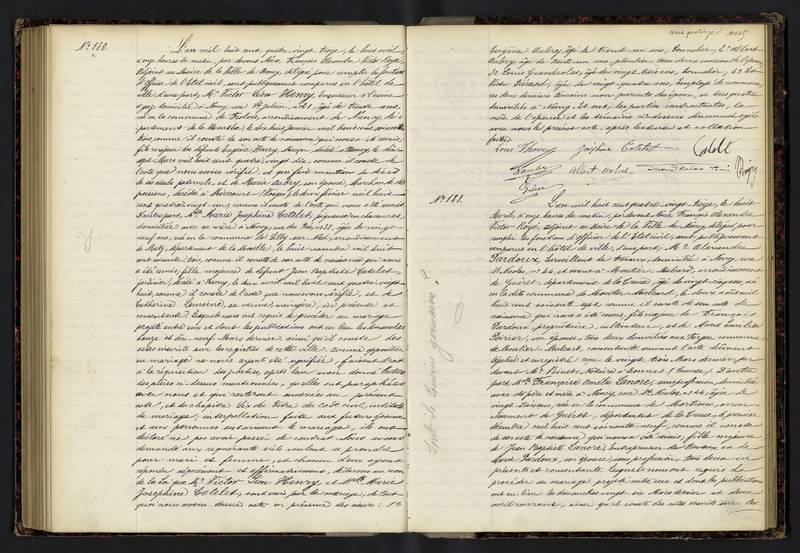 N° 180.
L'an mil huit cent quatre vingt treize, le huit avril
d'onze heures du matin, par devant Nous, François Alexandre Victor Roye,
Adjoint au Maire de la Ville de Nancy, délégué pour remplir les fonctions
d'officier de l'état civil, sont publiquement comparus en l'hôtel de
ville d'une part, Mr Victor Léon Henry,
domicilié à Nancy, âgé de trente ans,
né en la commune de Frolois, arrondissement de Nancy, dé-
partement de la Meurthe, le dix huit janvier mil huit cent soixante
trois, comme il conste de son acte de naissance qui nous a été remis,
fils majeur de défunt Eugène Henry, décédé à Nancy, le dix
sept Mars mil huit cent quatre vingt dix, comme il conste de
l'acte que nous avons vérifié, et qui fait mention du décès
de ses aïeuls paternels, et de Marie Aubry, son épouse,
décédée à (Vosges), le deux février mil huit
cent quatre vingt un, comme il conste de l'acte qui nous a été remis
D'autre part, Mlle Marie Joséphine Catelet, piqueuse en chaussures,
domiciliée avec sa mère à Nancy, âgée de vingt
neuf ans, née en la commune de arrondissement
de Metz, département de la Moselle, le huit novembre mil huit
cent soixante trois, comme il conste de son acte de naissance qui nous
a été remis, fille majeure de défunt Jean Baptiste Catelet,
jardinier, décédé à Nancy, le deux avril mil huit cent quatre vingt
huit, comme il conste de l'acte que nous avons vérifié, et de
Catherine sa veuve, ménagère, ici présente et
consentante. Lesquels nous ont requis de procéder au mariage
projeté entre eux et dont les publications ont eu lieu les dimanches
douze et dix neuf Mars dernier ainsi qu'il conste des
actes inscrits sur les registres de cette ville. Aucune opposition
au mariage ne nous ayant été signifiée, faisant droit
à la réquisition des parties, après leur avoir donné lecture
des pièces ci-dessus mentionnées, qu'elles ont paraphées
avec nous et qui resteront annexées au présent
acte, et du chapitre VI du titre du Code civil, intitulé
du mariage, interpellation faite aux futurs époux
et aux personnes autorisant le mariage, ils ont
déclaré ne pas avoir passé de contrat. Nous avons
demandé aux requérants s'ils veulent se prendre
pour mari et femme, et chacun d'eux ayant
répondu séparément et affirmativement, déclarons au nom
de la loi que Mr Victor Léon Henry et Mlle Marie
Joséphine Catelet, sont unis par le mariage, de tout
quoi nous avons dressé acte en présence des sieurs : 1°
cent quatorze
Eugène Aubry, âgé de trente un ans, tonnelier, 2° Albert
Aubry, âgé de trente un ans, plombier, tous deux cousins de l'époux,
3° Louis Grandcolas, âgé de vingt trois ans, tonnelier, 4° et
Victor Férard, âgé de vingt quatre ans, employé de commerce,
ces deux derniers témoins non parents des époux, et tous quatre
domiciliés à Nancy. Et ont, les parties contractantes, la
mère de l'épouse et les témoins ci-dessus dénommés signé
avec nous le présent acte, après lecture et collation
faites.
Léon Henry Joséphine Catelet
Aubry Albert Aubry Grandcolas Roye
N° 181.
L'an mil huit cent quatre vingt treize, le huit
Avril à onze heures du matin, par devant Nous, François Alexandre
Victor Roye, adjoint au Maire de la Ville de Nancy, délégué pour
remplir les fonctions d'officier de l'état civil, sont publiquement
comparus en l'hôtel de ville, d'une part, Mr Alexandre
Pardoux, surveillant de travaux, domicilié à Nancy, rue
St Nicolas, n° 44, et avant à Moutier Malcard, arrondissement
de Guéret, département de la Creuse, âgé de vingt cinq ans, né
en la dite commune de Moutier Malcard, le deux août mil
huit cent soixante sept, comme il conste de son acte de
naissance qui nous a été remis, fils majeur de François
Pardoux, propriétaire cultivateur, et de Marie
Poirier, son épouse, tous deux domiciliés commune
de Moutier Malcard, consentants suivant l'acte dûment
légalisé et enregistré reçu le vingt trois Mars dernier, par
devant Mr Binet, Notaire à Bonnat (Creuse). D'autre
part, Mlle Françoise Amélie Lenoir, sans profession, domiciliée
avec ses père et mère à Nancy, rue St Nicolas, n° 44, âgée de
vingt trois ans, née en la commune de Mortroux, arron-
dissement de Guéret, département de la Creuse, le premier
décembre mil huit cent soixante neuf, comme il conste
de son acte de naissance, qui nous a été remis, fille majeure
de Jean Baptiste Lenoir, Entrepreneur de travaux et de
Marie Pardoux, son épouse, sans profession, tous deux ici
présents et consentants. Lesquels nous ont requis de
procéder au mariage projeté entre eux et dont les publications
ont eu lieu les dimanches vingt six Mars dernier et deux
avril courant, ainsi qu'il conste des actes inscrits sur les
sont ils cousins germains ?